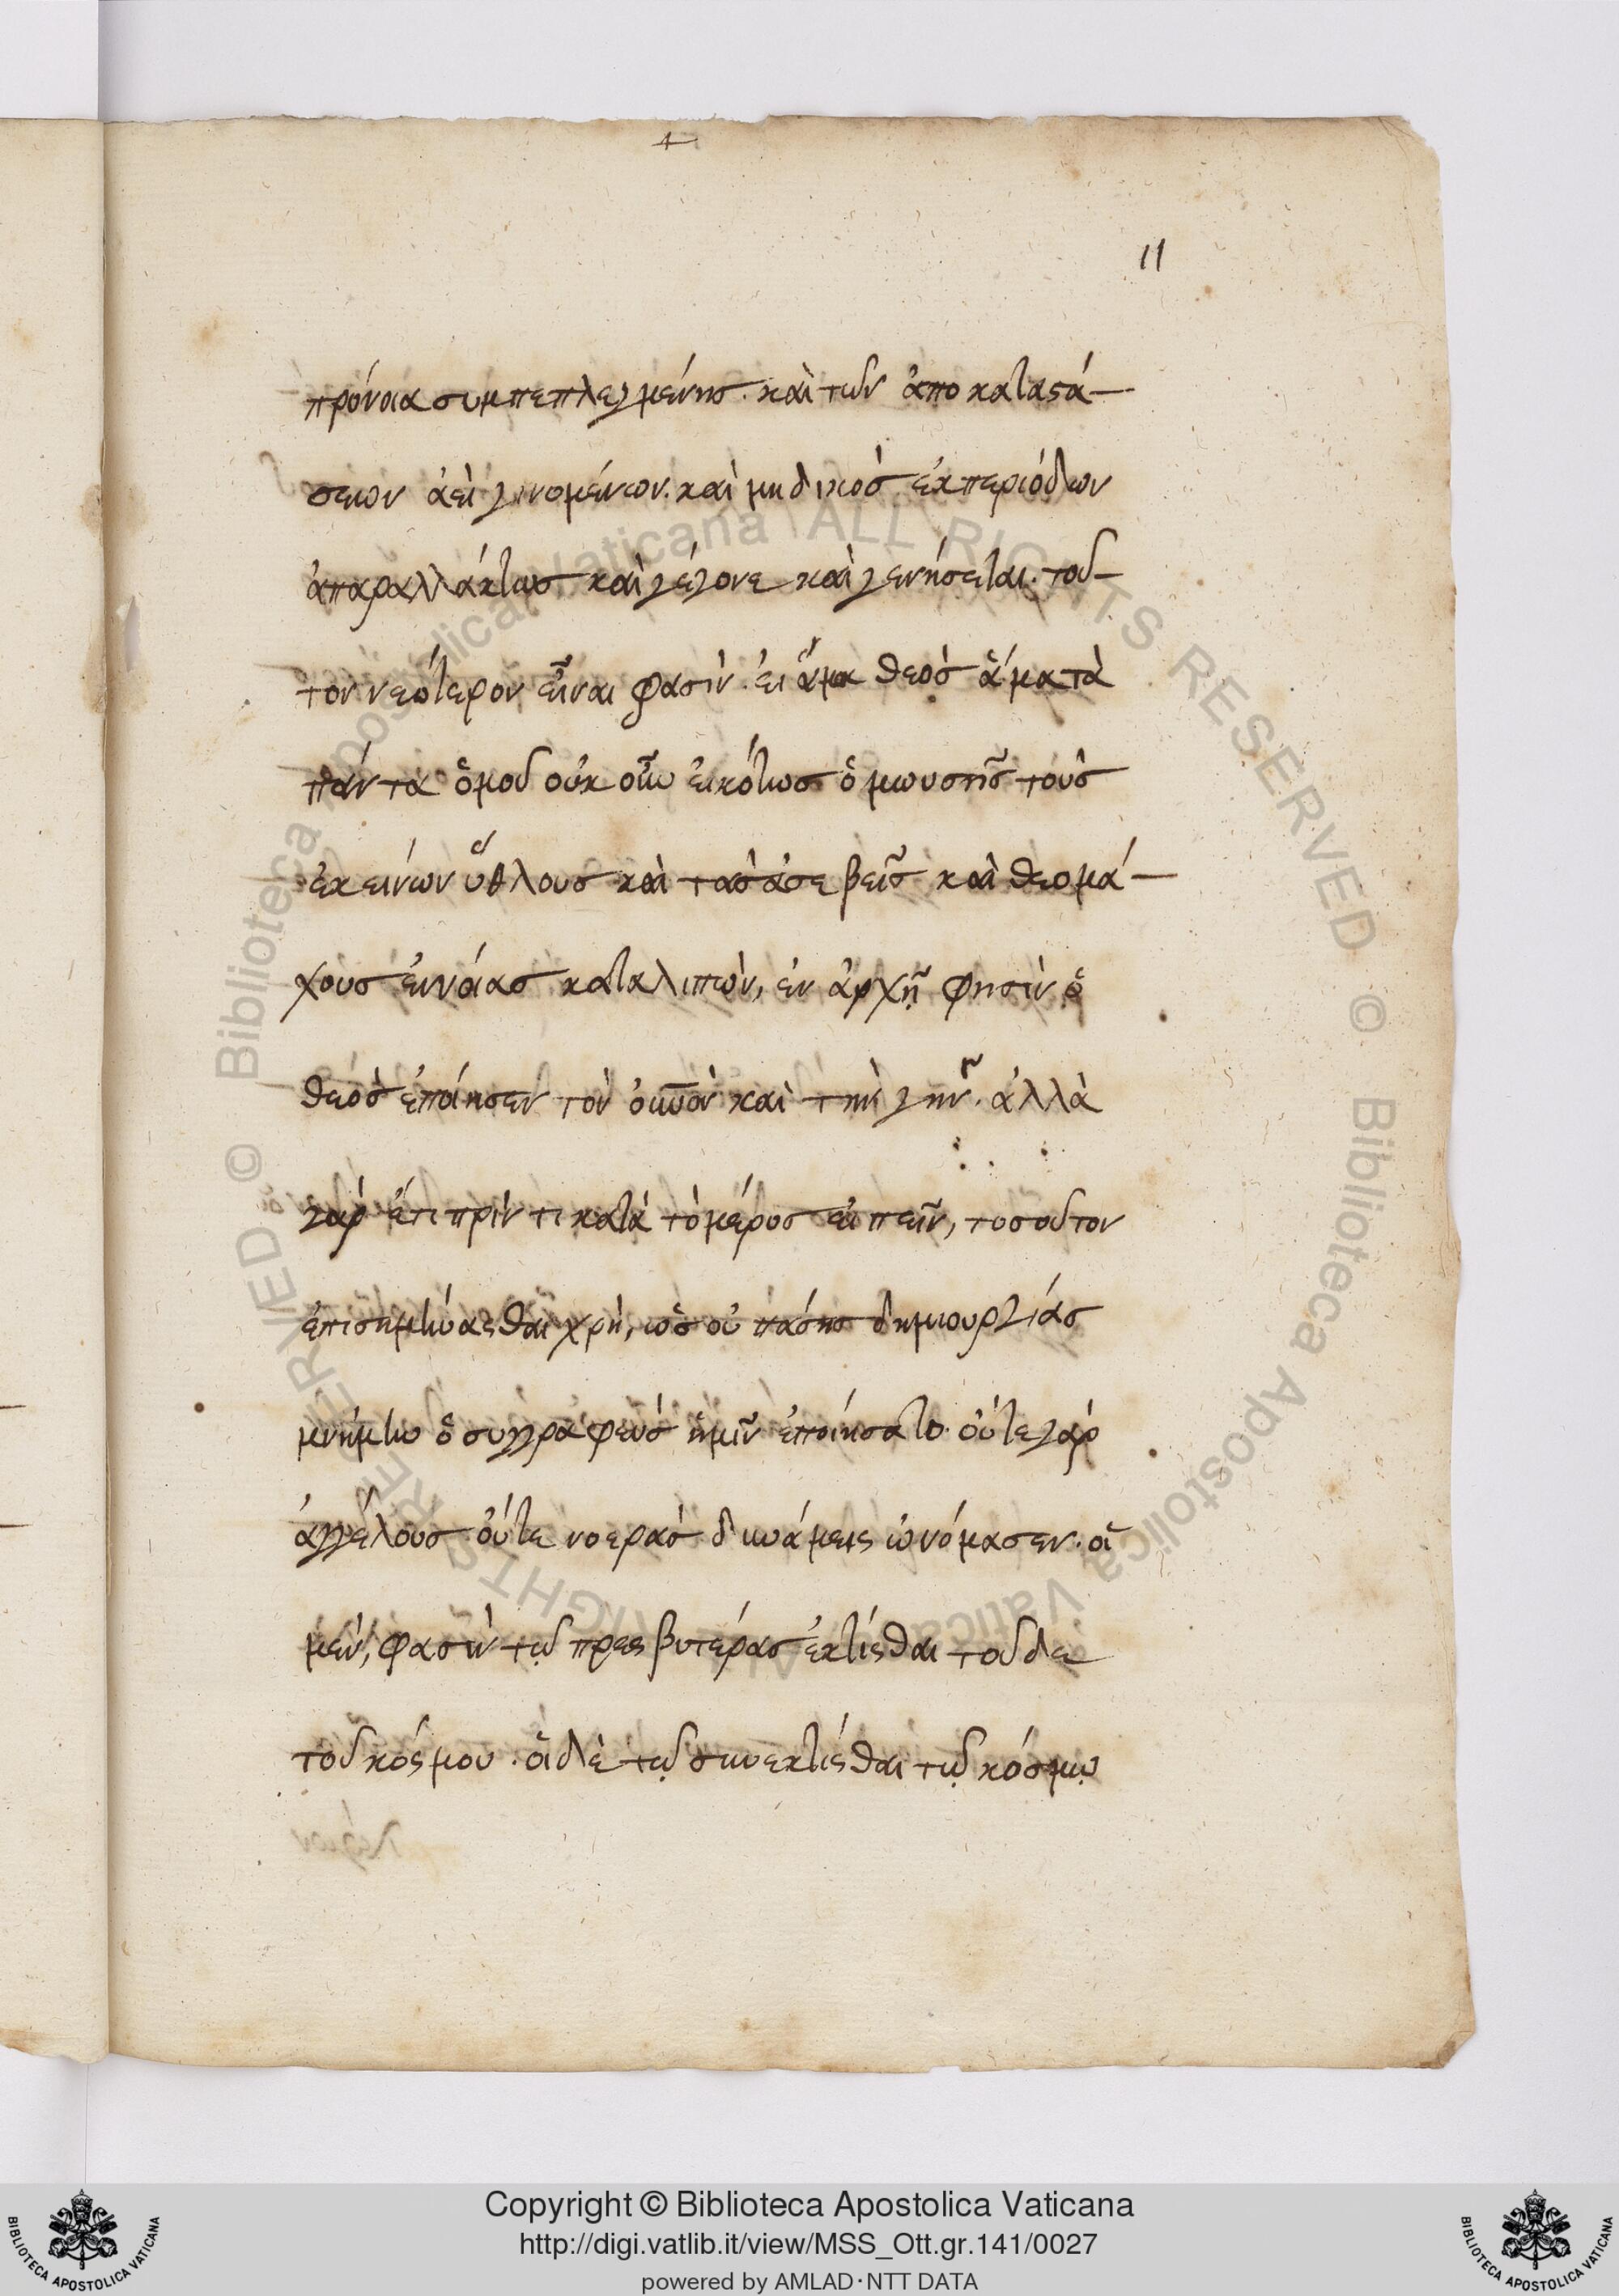 11
πρόνοια συμπεπλεγμένης. καὶ τῶν ἀποκαταστά-
σεων ἀεὶ γινομένων. καὶ μηδενὸς ἐκ περιόδων
ἀπαραλλάκτως καὶ γέγονε καὶ γενήσεται. τοῦ-
τον νεώτερον εἶναι φασὶν. εἰ ἅμα θεὸς ἅμα τὰ
πάντα ὁμοῦ οὐκοῦν εἰκότως ὁ μωυσῆς τοὺς
ἐκείνων ὕθλους καὶ τὰς ἀσεβεῖς καὶ θεομά-
χους ἐννοίας καταλιπὼν, ἐν ἀρχῇ φησὶν ὁ
θεὸς ἐποίησεν τὸν οὐνὸν καὶ τὴν γῆν. ἀλλὰ
γὰρ ἔτι πρίν τι κατὰ τὸ μέρος εἰπεῖν, τοσοῦτον
ἐπισημήνασθαι χρὴ, ὡς οὐ πάσης δημιουργίας
μνήμην ὁ συγγραφεὺς ἡμῖν ἐποιήσατο. οὔτε γὰρ
ἀγγέλους οὔτε νοερὰς δυνάμεις ὠνόμασεν. οἱ
μὲν, φασὶν τῷ πρεσβυτέρας ἐκτίσθαι τοῦδε
τοῦ κόσμου. οἱ δὲ τῷ συνεκτίσθαι τῷ κόσμῳ
Copyright © Biblioteca Apostolica Vaticana
http://digi.vatlib.it/view/MSS_Ott.gr.141/0027
powered by AMLAD·NTT DATA
© Biblioteca Apostolica Vaticana ALL RIGHTS RESERVED
© Biblioteca Apostolica Vaticana ALL RIGHTS RESERVED
BIBLIOTECA APOSTOLICA VATICANA
BIBLIOTECA APOSTOLICA VATICANA